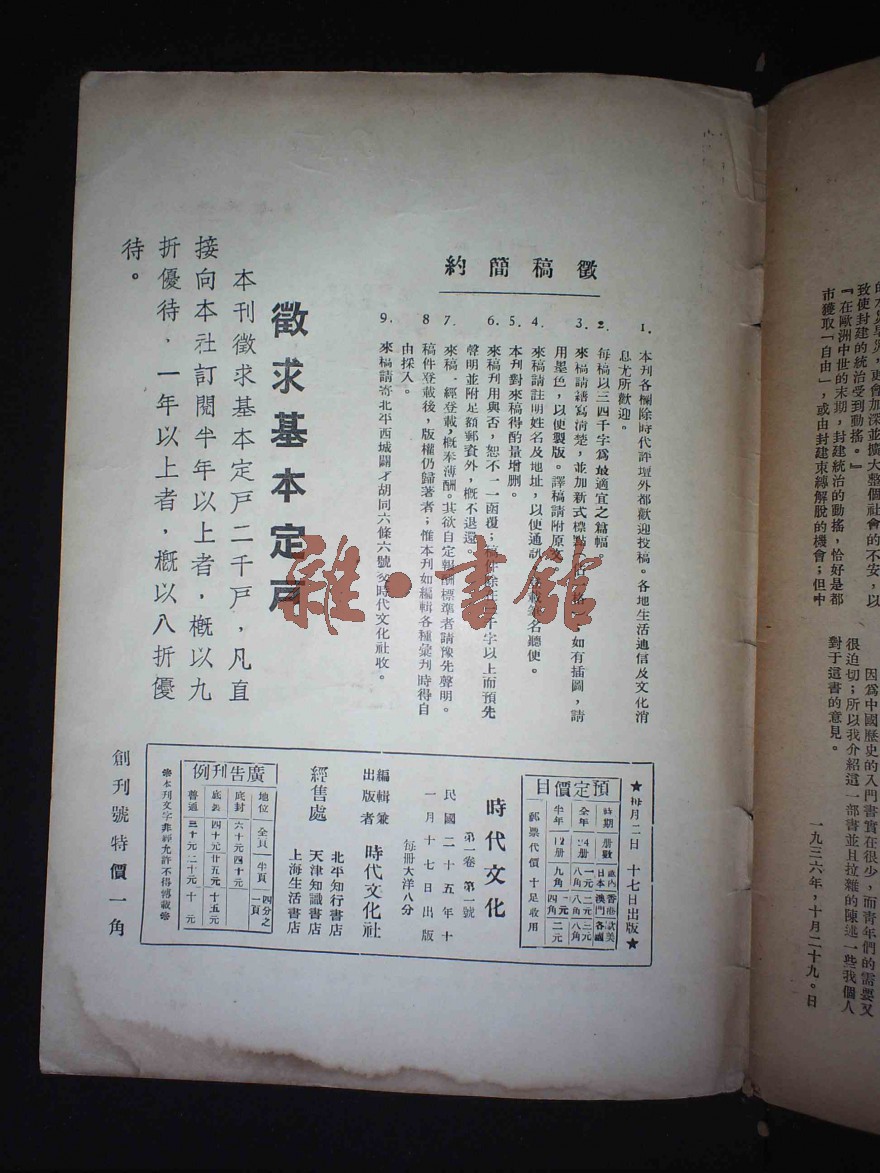 的水與旱災,更會加深並擴大整個社會的不安,以
致使封建的統治受到動搖。』
『在歐洲中世的末期,封建統治的動搖,恰好是都
市獲取「自由」,或由封建束縛解脫的機會;但中
因爲中國歷史的入門書實在很少,而靑年們的需要又
很迫切;所以我介紹這一部書並且拉雜的陳述一些我個人
對于這書的意見。
一九三六年,十月二十九。日
徵稿簡約
1. 本刊各欄除時代評壇外都歡迎投稿。各地生活通信及文化消
息尤所歡迎。
2. 每稿以三四千字爲最適宜之篇幅。
3. 來稿請繕寫淸楚,並加新式標點
如有插圖,請
用墨色,以便製版。譯稿請附原文
4. 來稿請註明姓名及地址,以便通訊。登載筆名聽便。
5. 本刊對來稿得酌量增删。
6. 來稿刊用與否,恕不一一函覆;稿件除在三千字以上而預先
聲明並附足額郵資外,槪不退還。
7. 來稿一經登載,槪奉薄酬。其欲自定報酬標準者請豫先聲明。
8 稿件登載後,版權仍歸著者;惟本刊如編輯各種彙刋時得自
由採入。
9. 來稿請寄北平西城闢才胡同六條六號
時代文化社收。
徵求基本定戶
本刊徵求基本定戶二千戶,凡直
接向本社訂閱半年以上者,槪以九
折優待,一年以上者,槪以八折優
待。
★每月二日 十七日出版★
預定價目
時期 册數 國內日本 香港澳門 歐美各國
全年 24册 一元八角 二元八角 三元八角
半年 12册 九角 一元四角 二元
郵票代價十足收用
時代文化
第一卷 第一號
民國二十五年十
一月十七日出版
每册大洋八分
編輯兼
出版者
時代文化社
經售處
北平知行書店
天津知識書店
上海生活書店
廣告刊例
地位 全頁 半頁 四分之一頁
底封 六十元 四十元
底裏 四十元 廿五元 十五元
普通 三十元 二十元 十元
※本刊文字非經允許不得轉載※
創刊號特價一角
雜·書館